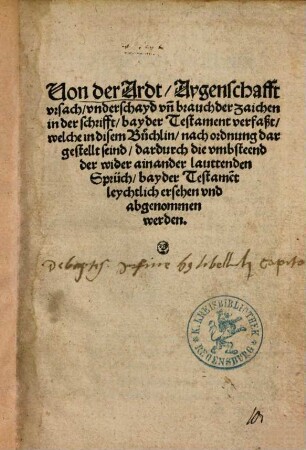 Von der Ardt / Aygenschafft
vrsach / vnderschayd vñ brauch der zaichen
in der schrifft / bayder Testament verfaßt /
welche in disem Bůchlin / nach ordnung dar
gestellt seind / dardurch die vmbsteend
der wider ainander lauttenden
Sprüch / bayder Testamẽt
leychtlich ersehen vnd
abgenommen
werden.
K. KREISBIBLIOTHEK
REGENSBURG